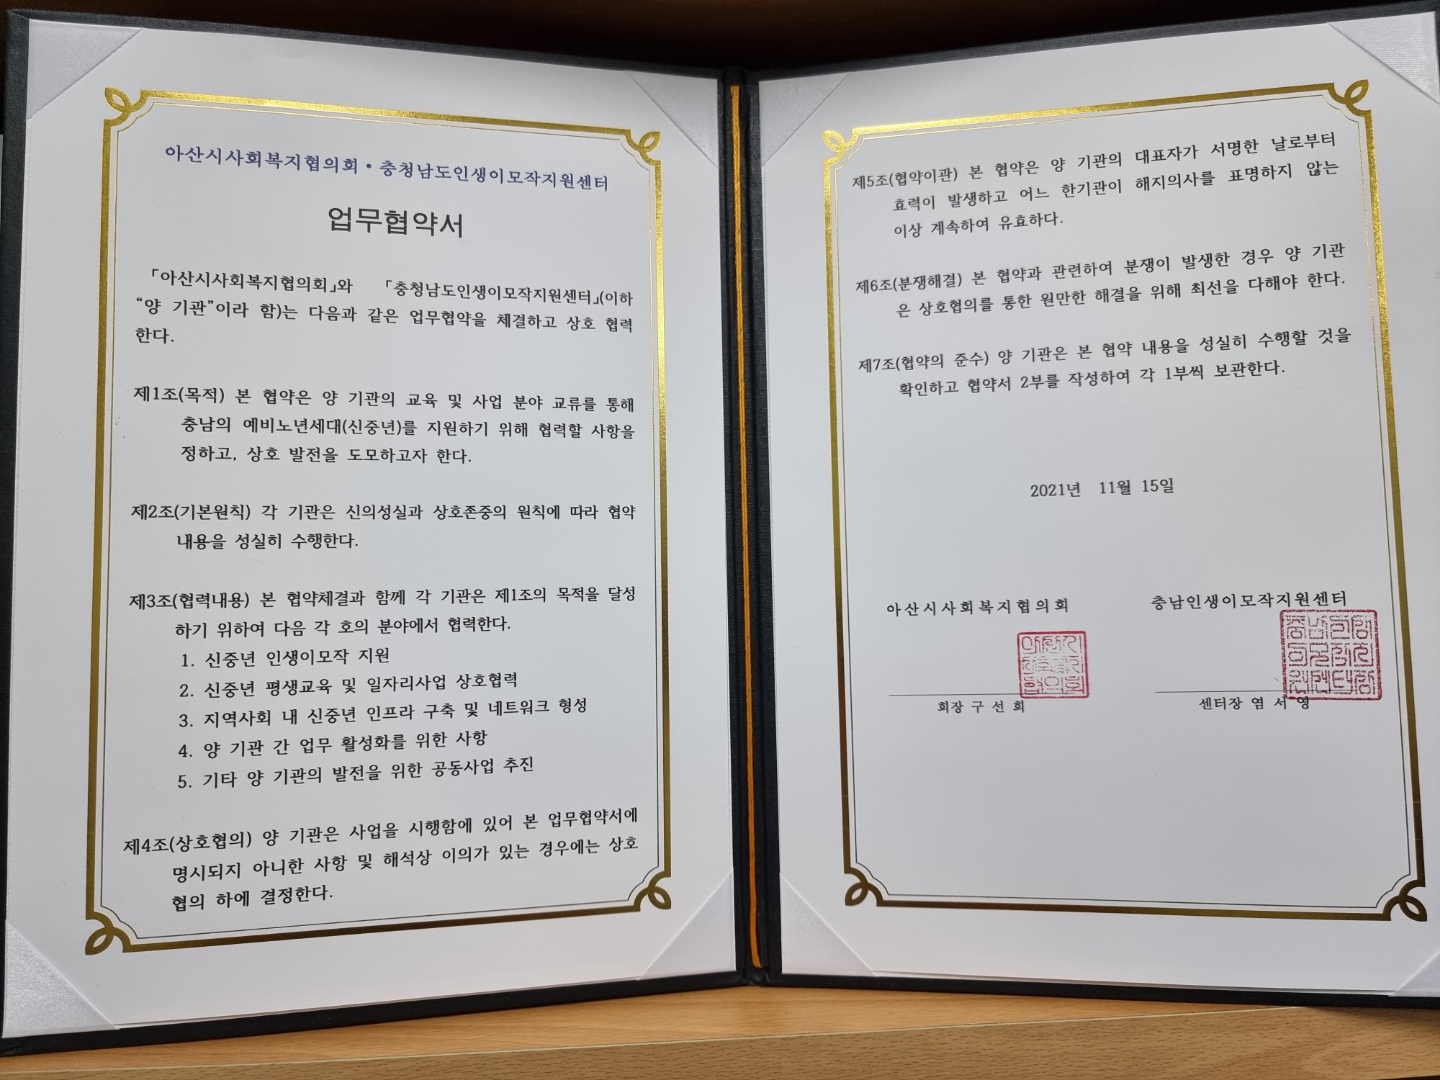 아산시사회복지협의회 • 충청남도인생이모작지원센터
업무협약서
「아산시사회복지협의회」와 「충청남도인생이모작지원센터」(이하
“양 기관”이라 함)는 다음과 같은 업무협약을 체결하고 상호 협력
한다.
제1조(목적) 본 협약은 양 기관의 교육 및 사업 분야 교류를 통해
충남의 예비노년세대(신중년)를 지원하기 위해 협력할 사항을
정하고, 상호 발전을 도모하고자 한다.
제2조(기본원칙) 각 기관은 신의성실과 상호존중의 원칙에 따라 협약
내용을 성실히 수행한다.
제3조(협력내용) 본 협약체결과 함께 각 기관은 제1조의 목적을 달성
하기 위하여 다음 각 호의 분야에서 협력한다.
1. 신중년 인생이모작 지원
2. 신중년 평생교육 및 일자리사업 상호협력
3. 지역사회 내 신중년 인프라 구축 및 네트워크 형성
4. 양 기관 간 업무 활성화를 위한 사항
5. 기타 양 기관의 발전을 위한 공동사업 추진
제4조(상호협의) 양 기관은 사업을 시행함에 있어 본 업무협약서에
명시되지 아니한 사항 및 해석상 이의가 있는 경우에는 상호
협의 하에 결정한다.
제5조(협약이관) 본 협약은 양 기관의 대표자가 서명한 날로부터
효력이 발생하고 어느 한기관이 해지의사를 표명하지 않는
이상 계속하여 유효하다.
제6조(분쟁해결) 본 협약과 관련하여 분쟁이 발생한 경우 양 기관
은 상호협의를 통한 원만한 해결을 위해 최선을 다해야 한다.
제7조(협약의 준수) 양 기관은 본 협약 내용을 성실히 수행할 것을
확인하고 협약서 2부를 작성하여 각 1부씩 보관한다.
2021년 11월 15일
아산시사회복지협의회
충남인생이모작지원센터
회장 구 선 희
센터장 염 서 영